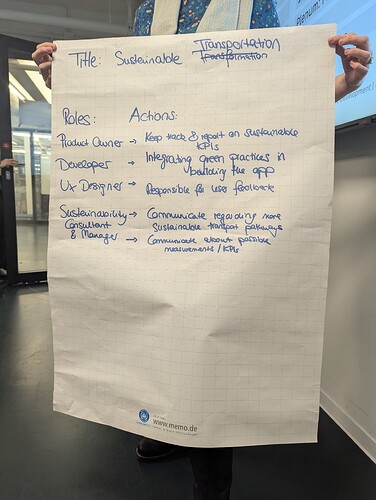 Plenum:
Title: Sustainable Transportation
Transformation
Roles: Actions:
Product Owner → Keep track & report on sustainable
KPIs
Developer → Integrating green practices in
building the app
UX Designer → Responsible for user feedback
Sustainability → Communicate regarding more
Consultant sustainable transport pathways
& Manager → Communicate about possible
measurements / KPIs
www.memo.de